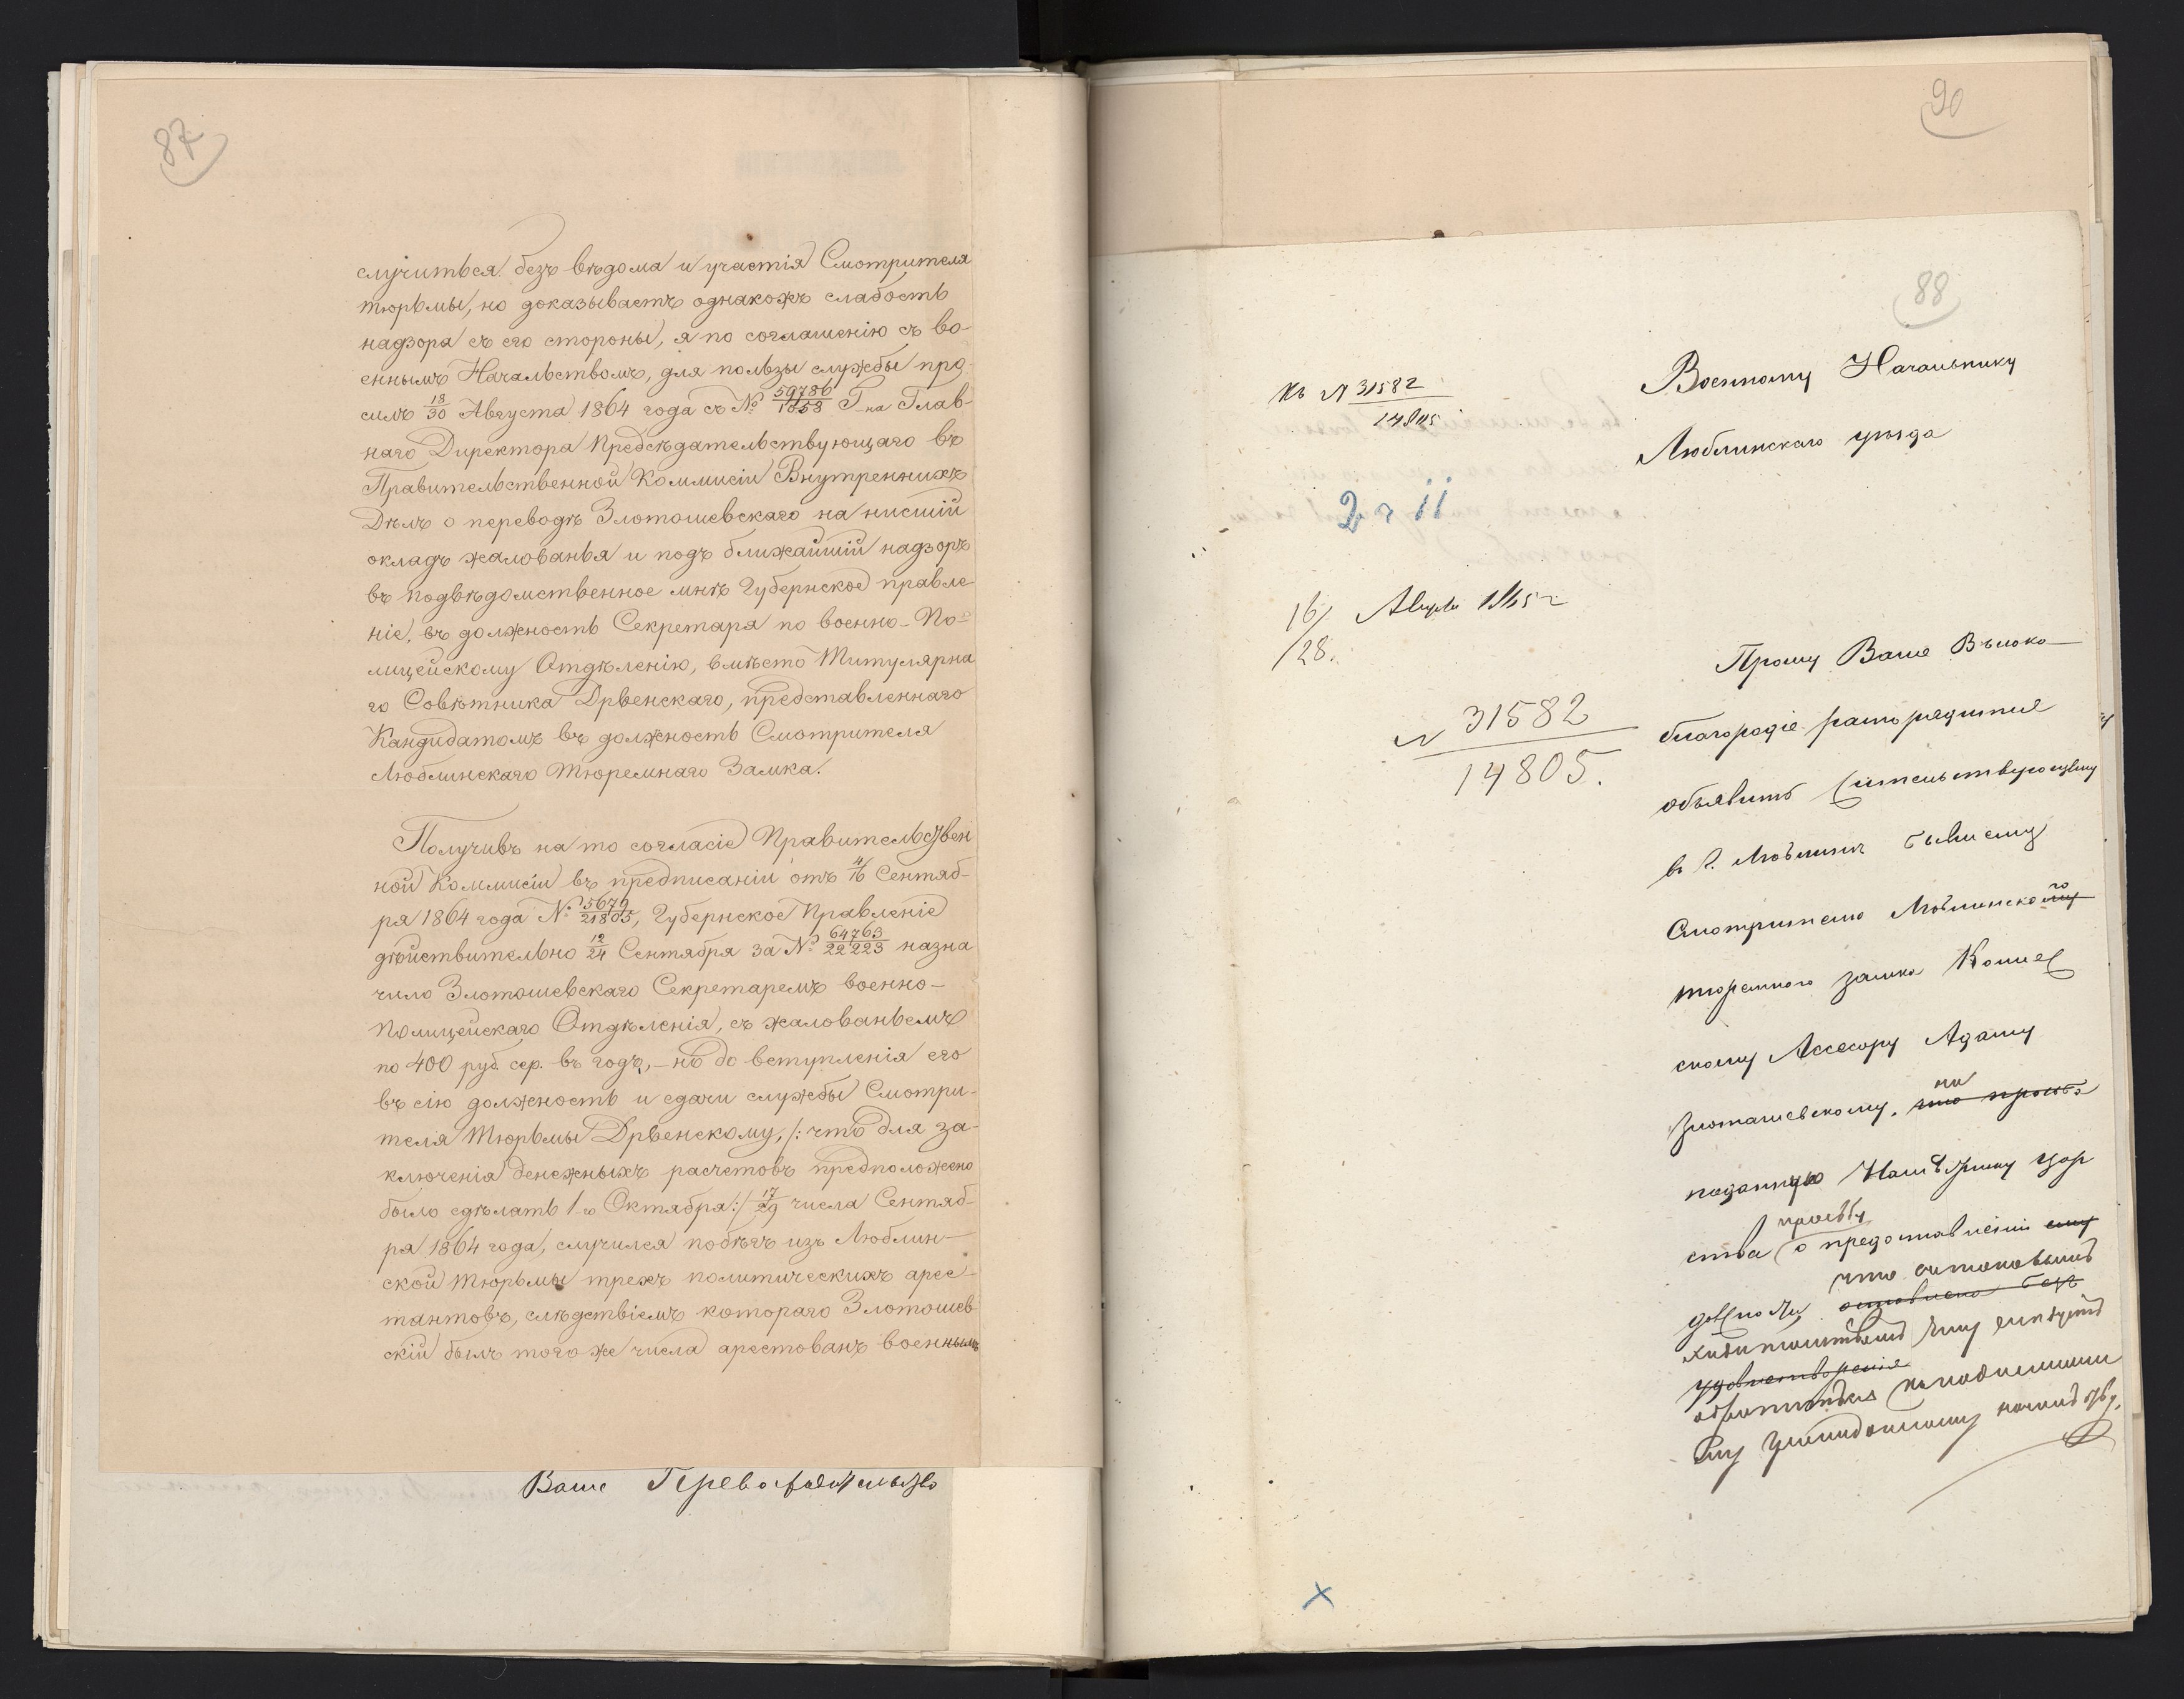 87
случиться безъ вѣдома и участія Смотрителя
тюрьмы, но доказываетъ однакожъ слабость
надзора съ его стороны, я по соглашенію съ во-
еннымъ Начальствомъ, для пользы службы про-
силъ 18/30 Августа 1864 года съ № 59786/1658 Г-на Глав-
наго Директора Предсѣдательствующаго въ
Правительственной Коммисіи Внутреннихъ
Дѣлъ о переводѣ Злотошевскаго на нисшій
окладъ жалованья и подъ ближайшій надзоръ
въ подвѣдомственное мнѣ Губернское правле-
ніе, въ должность Секретаря по военно-По-
лицейскому Отдѣленію, вмѣсто Титулярна
го Совѣтника Дрвенскаго, представленнаго
Кандидатомъ въ должность Смотрителя
Люблинскаго Тюремнаго Замка.
Получивъ на то согласіе Правительствен
ной Коммисіи въ предписаніи отъ 4/16 Сентяб-
ря 1864 года № 5679/21805, Губернское Правленіе
дѣйствительно 12/24 Сентября за № 64763/22223 назна
чило Злотошевскаго Секретаремъ военно-
Полицейскаго Отдѣленія, съ жалованьемъ
по 400 руб. сер. въ годъ, – но до вступленія его
въ сію должность и сдачи службы Смотри-
теля Тюрьмы Дрвенскому, /: что для за-
ключенія денежныхъ расчетовъ предположено
было сдѣлать 1-го Октября :/ 17/29 числа Сентяб-
ря 1864 года, случился побѣгъ изъ Люблин-
ской тюрьмы трехъ политическихъ арес-
тантовъ, слѣдствіемъ котораго Злотошев-
скій былъ того же числа арестованъ военнымъ
Ваше Превосходительство
90
88
Военному Начальнику
Люблинскаго уѣзда
Къ № 31582/14805
16/28. Августа 1865 г
№ 31582/14805.
Прошу Ваше Высоко-
благородіе распорядиться
объявить жительствующему
въ г. Люблинѣ бывшему
Смотрителю Люблинскому го
тюремнаго замка Коллеж
скому Ассесору Адаму
Злоташевскому, что на просьба
поданную Намѣстнику Цар
ства просьбу о предоставленіи ему
должности, оставлена безъ
что
удовлетворенія
ему слѣдуетъ